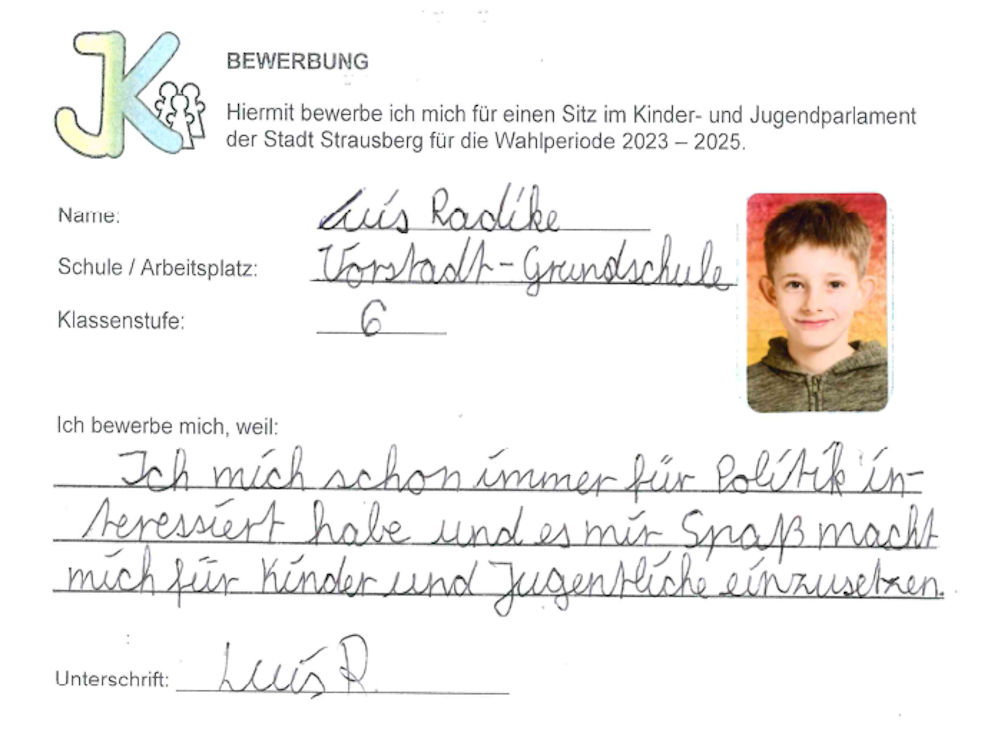 JK
BEWERBUNG
Hiermit bewerbe ich mich für einen Sitz im Kinder- und Jugendparlament
der Stadt Strausberg für die Wahlperiode 2023 – 2025.
Name: Luis Radike
Schule / Arbeitsplatz: Vorstadt-Grundschule
Klassenstufe: 6
Ich bewerbe mich, weil:
Ich mich schon immer für Politik in-
teressiert habe und es mir Spaß macht
mich für Kinder und Jugentliche einzusetzen.
Unterschrift: Luis R.